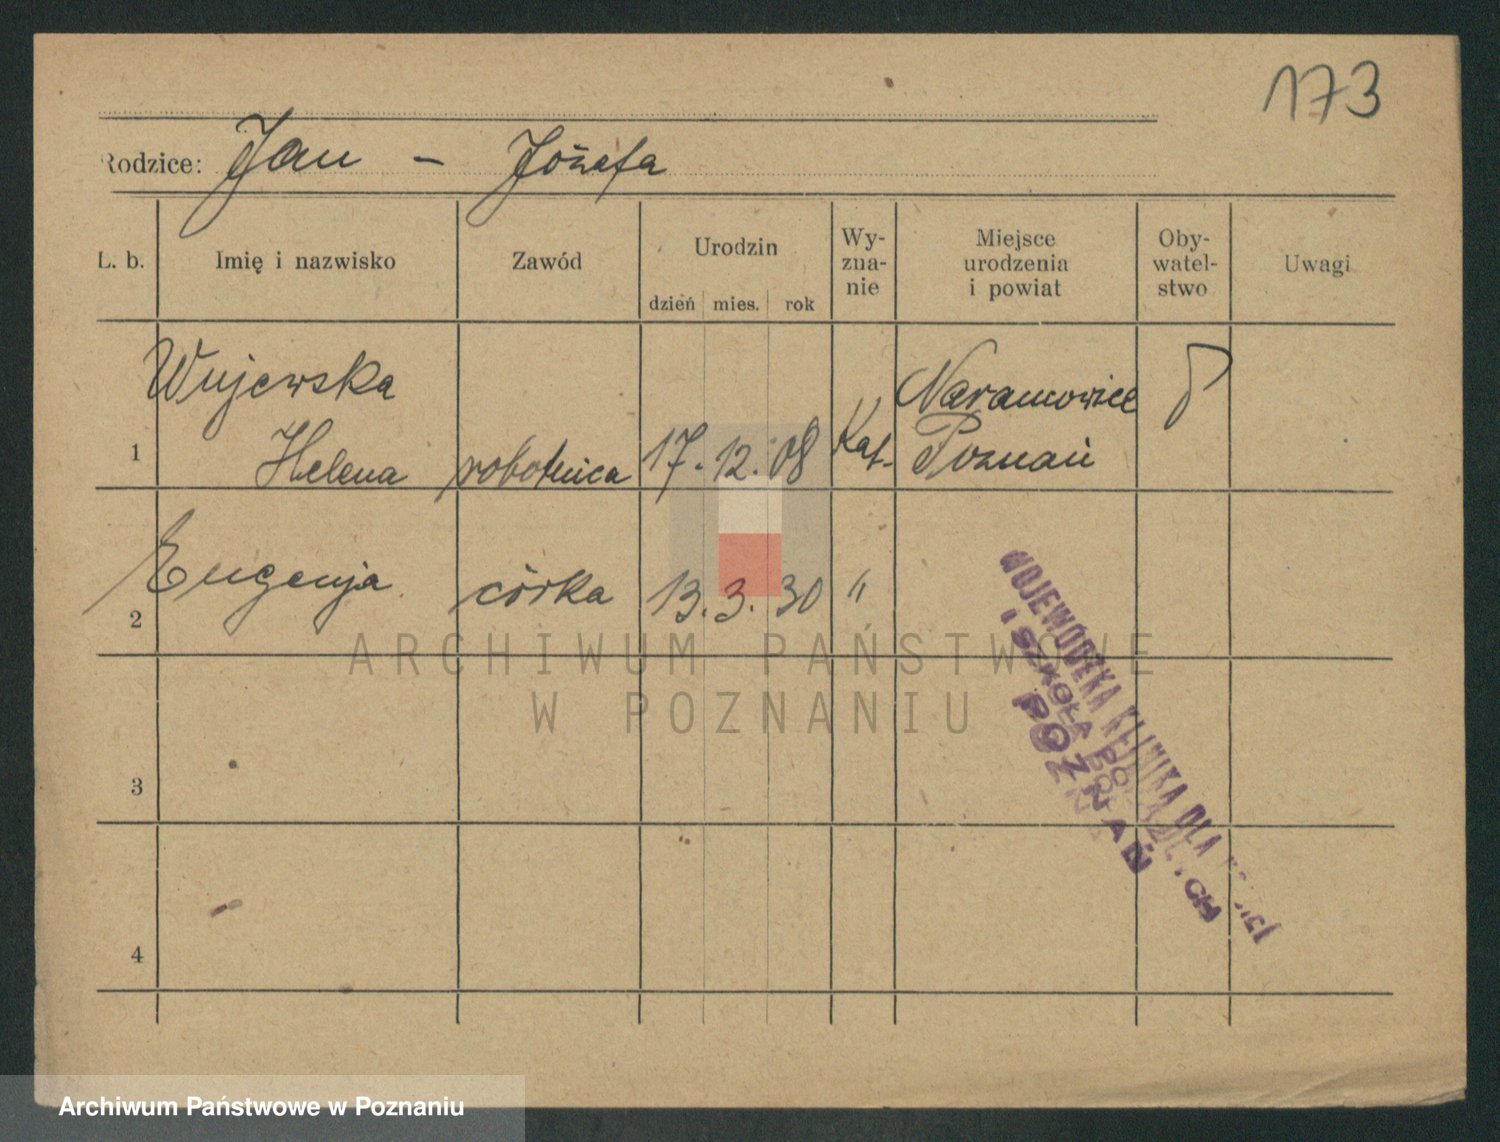 173
Rodzice: Jan – Józefa
L. b. Imię i nazwisko Zawód Urodzin dzień mies. rok Wy-zna-nie Miejsce urodzenia i powiat Oby-watel-stwo Uwagi
Wujewska Naramowice
1 Helena robotnica 17. 12. 08 Kat. Poznań
2 Eugenja córka 13. 3. 30 "
3
4
WOJEWÓDZKA KLINIKA DLA
I SZKOŁA POŁOŻNYCH
POZNAŃ
ARCHIWUM PAŃSTWOWE
W POZNANIU
Archiwum Państwowe w Poznaniu